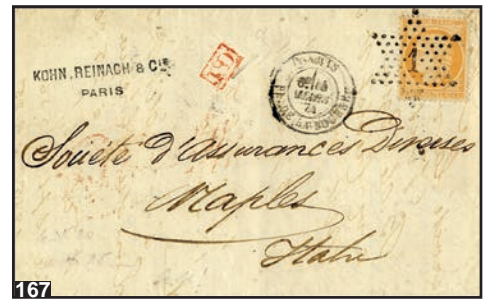 KOHN, REINACH & CIE
PARIS
PD
PARIS
PL. DE LA BOURSE
1
Société d'assurances Diverses
Naples
Italie
167